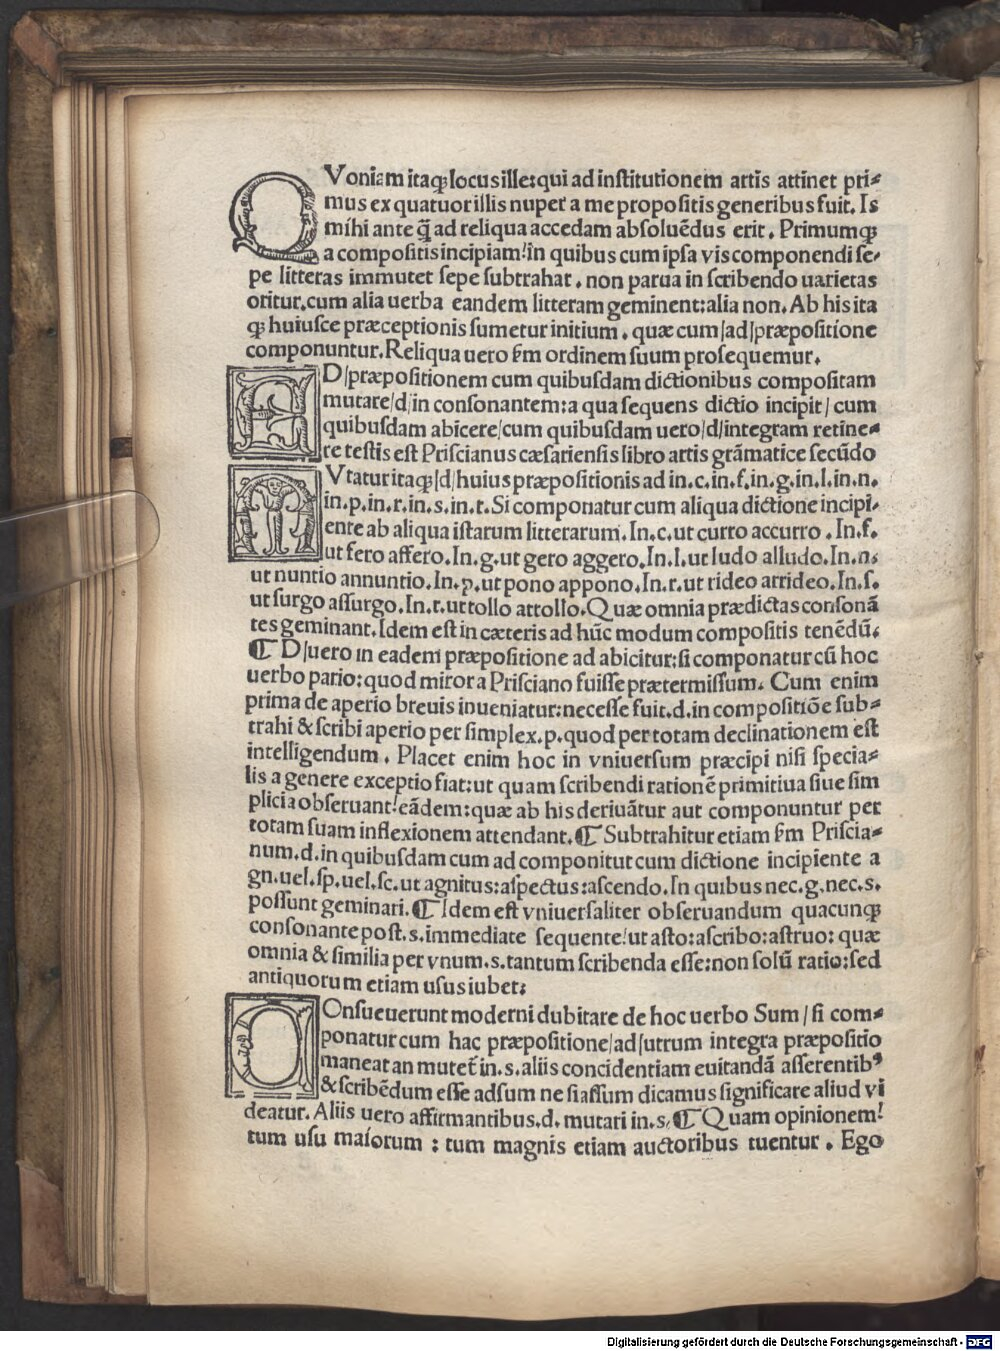 QVoniam itaq; locus ille: qui ad institutionem artis attinet pri-
mus ex quatuor illis nuper a me propositis generibus fuit. Is
mihi ante q̃ ad reliqua accedam absoluēdus erit. Primumq;
a compositis incipiam: in quibus cum ipsa vis componendi se-
pe litteras immutet sepe subtrahat. non parua in scribendo uarietas
oritur. cum alia uerba eandem litteram geminent: alia non. Ab his ita
q; huiusce præceptionis sumetur initium. quæ cum/ad/præpositione
componuntur. Reliqua uero ẞm ordinem suum prosequemur.
AD/præpositionem cum quibusdam dictionibus compositam
mutare/d/in consonantem: a qua sequens dictio incipit/cum
quibusdam abicere/cum quibusdam uero/d/integram retine-
re testis est Priscianus cæsariensis libro artis grāmatice secūdo
MVtatur itaq;/d/huius præpositionis ad in.c.in.f.in.g.in.l.in.n.
in.p.in.r.in.s.in.t. Si componatur cum aliqua dictione incipi-
ente ab aliqua istarum litterarum. In.c.ut curro accurro. In.f.
ut fero affero. In.g.ut gero aggero. In.l.ut ludo alludo. In.n.
ut nuntio annuntio. In.p.ut pono appono. In.r.ut rideo arrideo. In.s.
ut surgo assurgo. In.t.ut tollo attollo. Quæ omnia prædictas consonā
tes geminant. Idem est in cæteris ad hūc modum compositis tenēdū.
¶ D/uero in eadem præpositione ad abicitur: si componatur cū hoc
uerbo pario: quod miror a Prisciano fuisse prætermissum. Cum enim
prima de aperio breuis inueniatur: necesse fuit.d.in compositiōe sub-
trahi & scribi aperio per simplex.p.quod per totam declinationem est
intelligendum. Placet enim hoc in vniuersum præcipi nisi specia-
lis a genere exceptio fiat: ut quam scribendi rationē primitiua siue sim
plicia obseruant: eādem: quæ ab his deriuātur aut componuntur per
totam suam inflexionem attendant. ¶ Subtrahitur etiam ẞm Priscia-
num.d.in quibusdam cum ad componitut cum dictione incipiente a
gn.uel.sp.uel.sc.ut agnitus: aspectus: ascendo. In quibus nec.g.nec.s.
possunt geminari. ¶ Idem est vniuersaliter obseruandum quacunq;
consonante post.s.immediate sequente: ut asto: ascribo: astruo: quæ
omnia & similia per vnum.s.tantum scribenda esse: non solū ratio: sed
antiquorum etiam usus iubet:
COnsueuerunt moderni dubitare de hoc uerbo Sum/si com-
ponatur cum hac præpositione/ad/utrum integra præpositio
maneat an mutet̃ in.s.aliis concidentiam euitandā asserentibꝰ
& scribēdum esse adsum ne si assum dicamus significare aliud vi
deatur. Aliis uero affirmantibus.d.mutari in.s. ¶ Quam opinionem:
tum usu maiorum: tum magnis etiam auctoribus tuentur. Ego
Digitalisierung gefördert durch die Deutsche Forschungsgemeinschaft - DFG